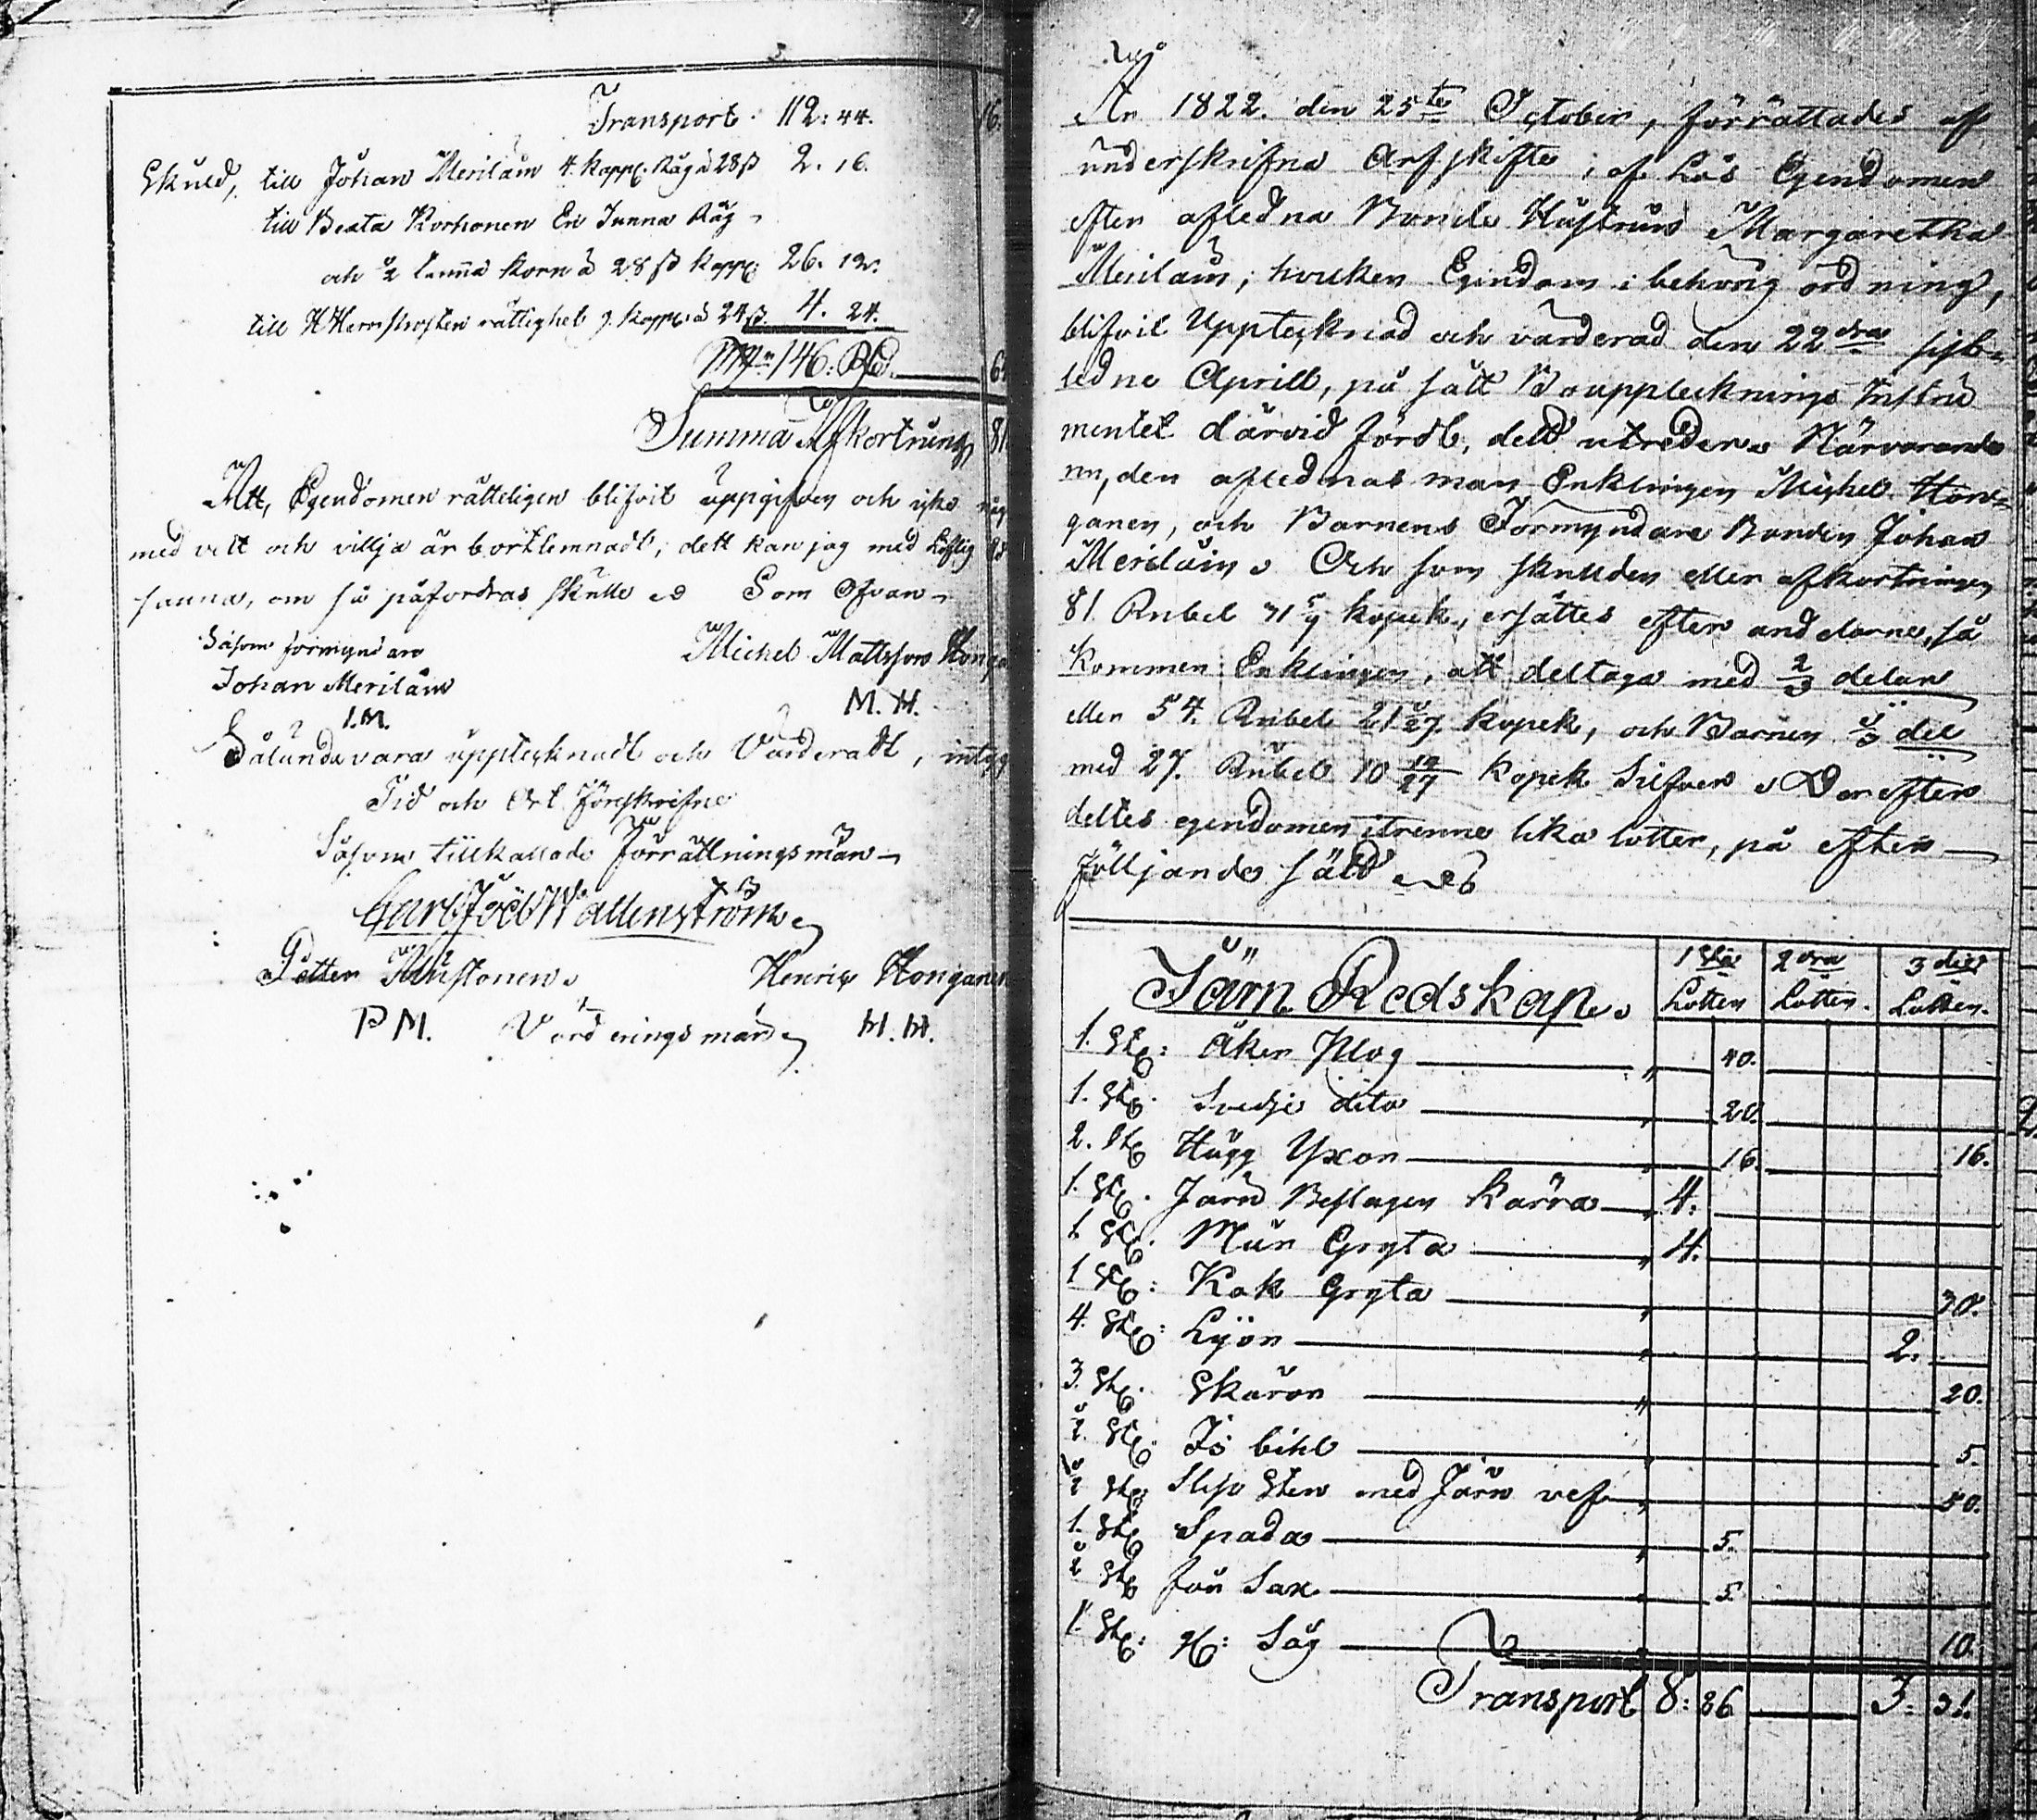 Transport. 112: 44.
Skuld, till Johan Meriläin 4. kapp. Råg a 28 ß 2. 16.
till Beata Korhonen En Tunna Råg
och ½ tunna korn a 28 ß kapp 26. 12.
rättighet 9. kapp. a 24 ß. 4. 24.
146: Rd.
Summa Afkortning 81
Att, Egendomen rätteligen blifvit uppgifven och icke
med vett och villja är bortlemnadt, dett kan jag med Liflig
sanna, om så påfordras skulle Som Ofvan
Såsom formyndare Michel Mattsson
Johan Meriläin
I.M. M. H.
Sålunda vara upptecknadt och Värderadt, intyg
Tid och Ort Förskrifne
Såsom tillkallade Förrättningsmän
Carl Joel Wallenström
Petter Mustonen Henric Honganen
P M. Värderingsmän H. H.
År 1822. den 25te October, förrättades af
underskrifna Arfskifte; af Lös Egendomen
efter afledna Bonde Hustrun Margaretha
Meriläin; hvilken Egendom i behörig ordning,
blifvit Upptecknad och värderad den 22dra sist-
ledne Aprill, på sätt Boupptecknings Instru
mentet därvid fördt, dett utreder Närvarande
den aflednas man Enklingen Michel Hon-
ganen, och Barnens Förmyndare Bonden Johan
Meriläin. Och som skulden eller afkortningen
81. Rubel 31 kopek, ersättes efter andelarne, så
kommer Enklingen, att deltaga med 2/3 delar
eller 54. Rubel 21 kopek, och Barnen 1/3 del
med 27. Rubel 10 kopek Silfver. Derefter
deltes egendomen i trenne lika lotter, på efter
följande sätt
Järn Redskap. 1sta Lotten 2dra Lotten. 3die Lotten.
1. St: Åker Plog 40.
1. St. Svedje dito 20.
2. St Hugg Yxor 16. 16.
1. St. Järn Beslagen Kärra 4.
1. St. Mur Gryta 4.
1 St: Kok Gryta 30.
4. St: Lijor 2.
3. St. Skäror 20.
1. St. Is bihl 5.
1 St. Slip Sten med Järn vef 50.
1. St Spada 5.
1 St Får Sax 5.
1. St: Såg 10.
Transport 8: 86 3: 31.